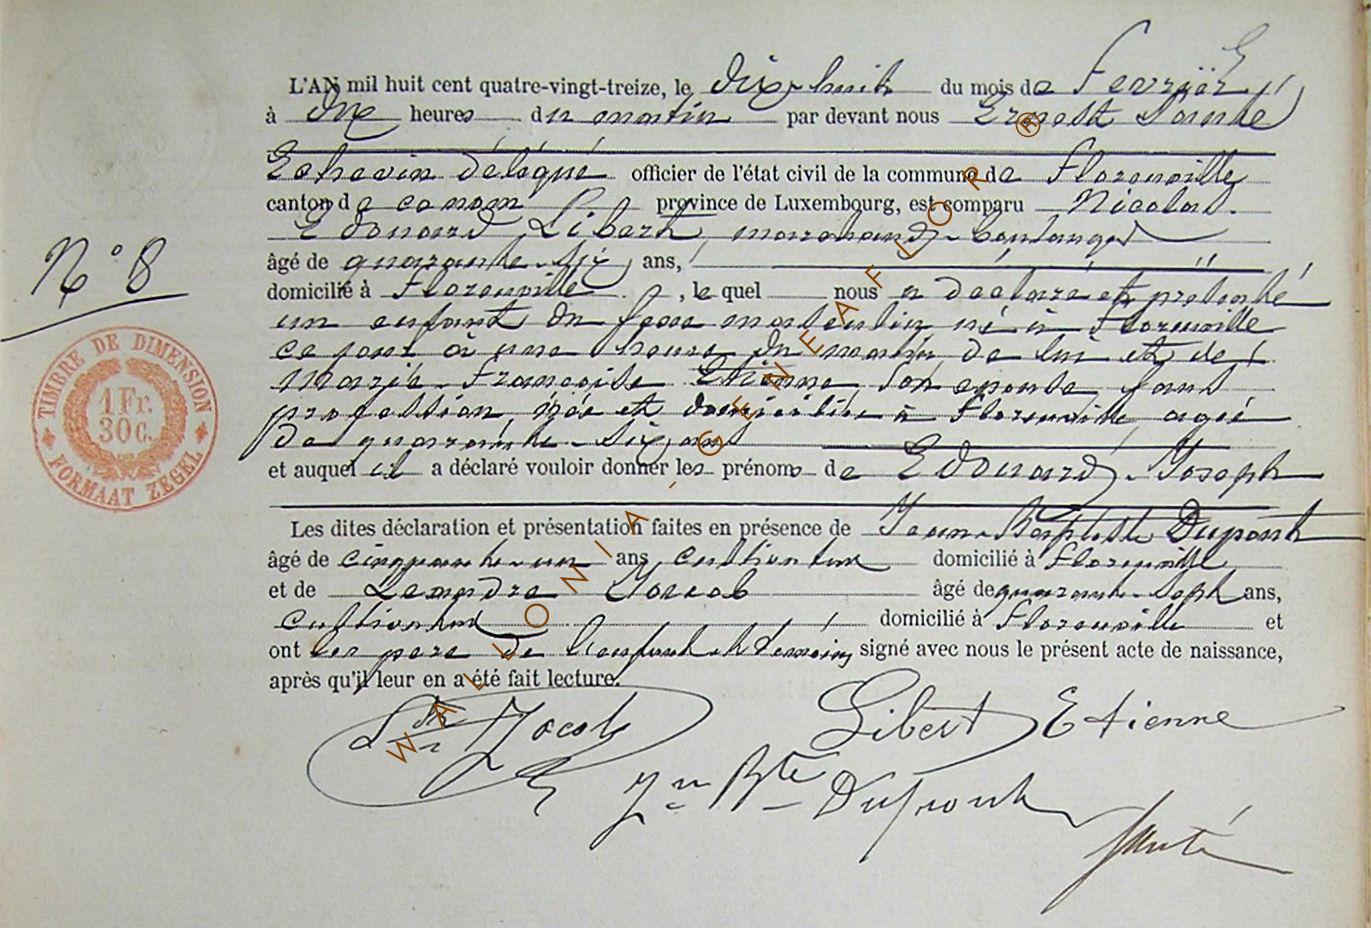 L'AN mil huit cent quatre-vingt-treize, le dix-huit du mois de Fevrier
à dix heures du matin par devant nous Ernest Santé
Echevin délégué officier de l'état civil de la commune de Florenville
canton de ce nom province de Luxembourg, est comparu Nicolas
Edouard Libert, marchand-boulanger
âgé de quarante-six ans,
domicilié à Florenville, le quel nous a déclaré et présenté
un enfant du sexe masculin né à Florenville
ce jour à une heure du matin de lui et de
Marie-Françoise Etienne son épouse sans
profession, née et domiciliée à Florenville agée
de quarante-six ans
et auquel il a déclaré vouloir donner les prénoms de Edouard-Joseph
N° 8
TIMBRE DE DIMENSION
1 Fr.
30 C.
FORMAAT ZEGEL
Les dites déclaration et présentation faites en présence de Jean-Baptiste Dupont
âgé de cinquante-un ans cultivateur domicilié à Florenville
et de Leandre Jacob âgé de quarante-sept ans,
cultivateur domicilié à Florenville et
ont les pere de l'enfant et témoins signé avec nous le présent acte de naissance,
après qu'il leur en a été fait lecture.
Jacob Libert Etienne
Jn Bte Dupont
Santé
WALLONIA-GENEAFLOR ®